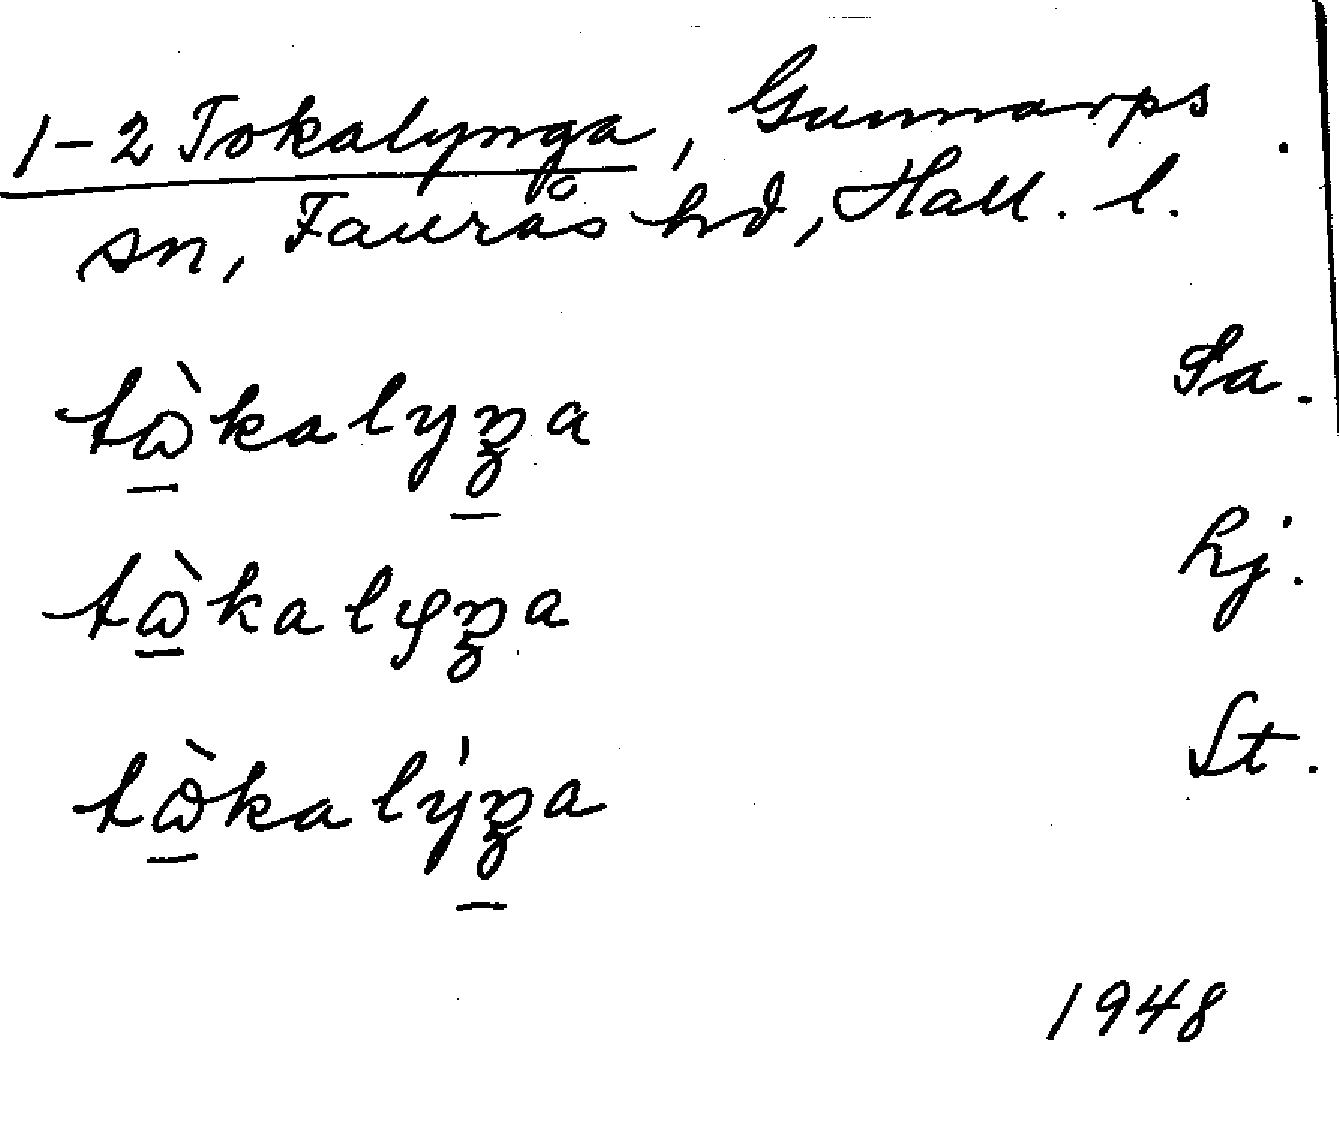 1-2 Tokalynga, Gunnarps
sn, Faurås hd, Hall. l.
tὼ̲kalyŋ̲a Sa.
tὼ̲kalyŋa Lj.
tὼ̲kalýŋ̲a St.
1948